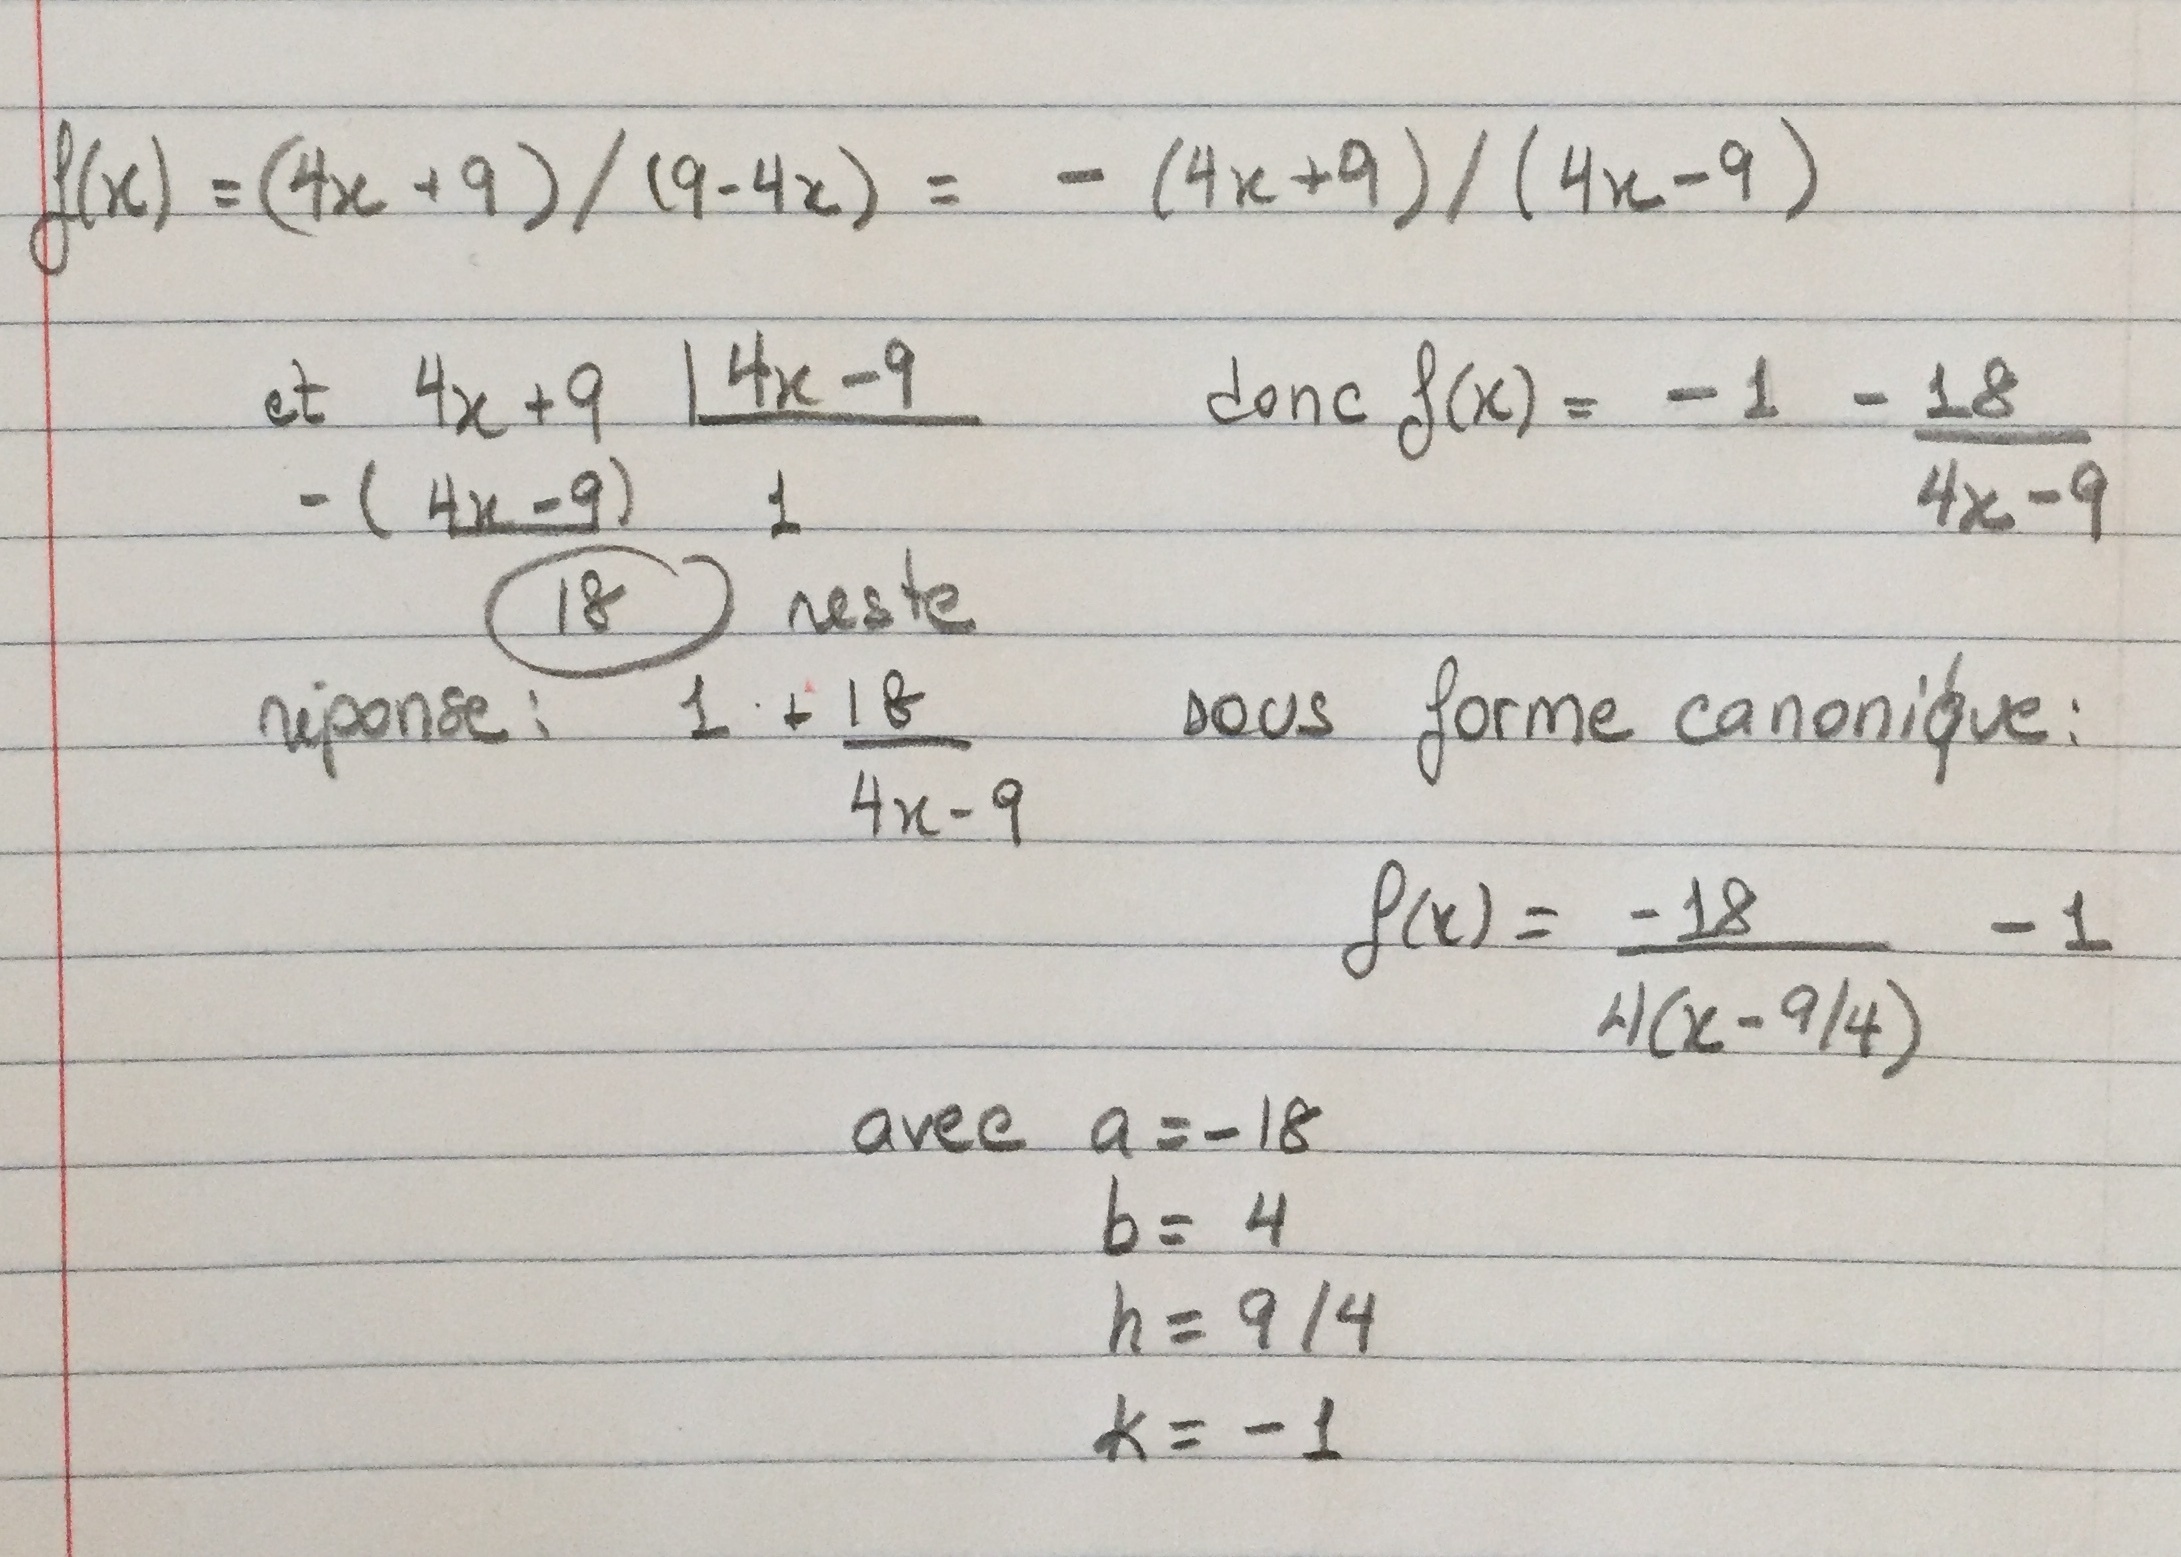 f(x) = (4x + 9) / (9 - 4x) = - (4x + 9) / (4x - 9)
et 4x + 9 | 4x - 9
- (4x - 9) 1
18 reste
réponse : 1 + 18
4x - 9
donc f(x) = - 1 - 18
4x - 9
sous forme canonique :
f(x) = -18 - 1
4(x - 9/4)
avec a = -18
b = 4
h = 9/4
k = -1